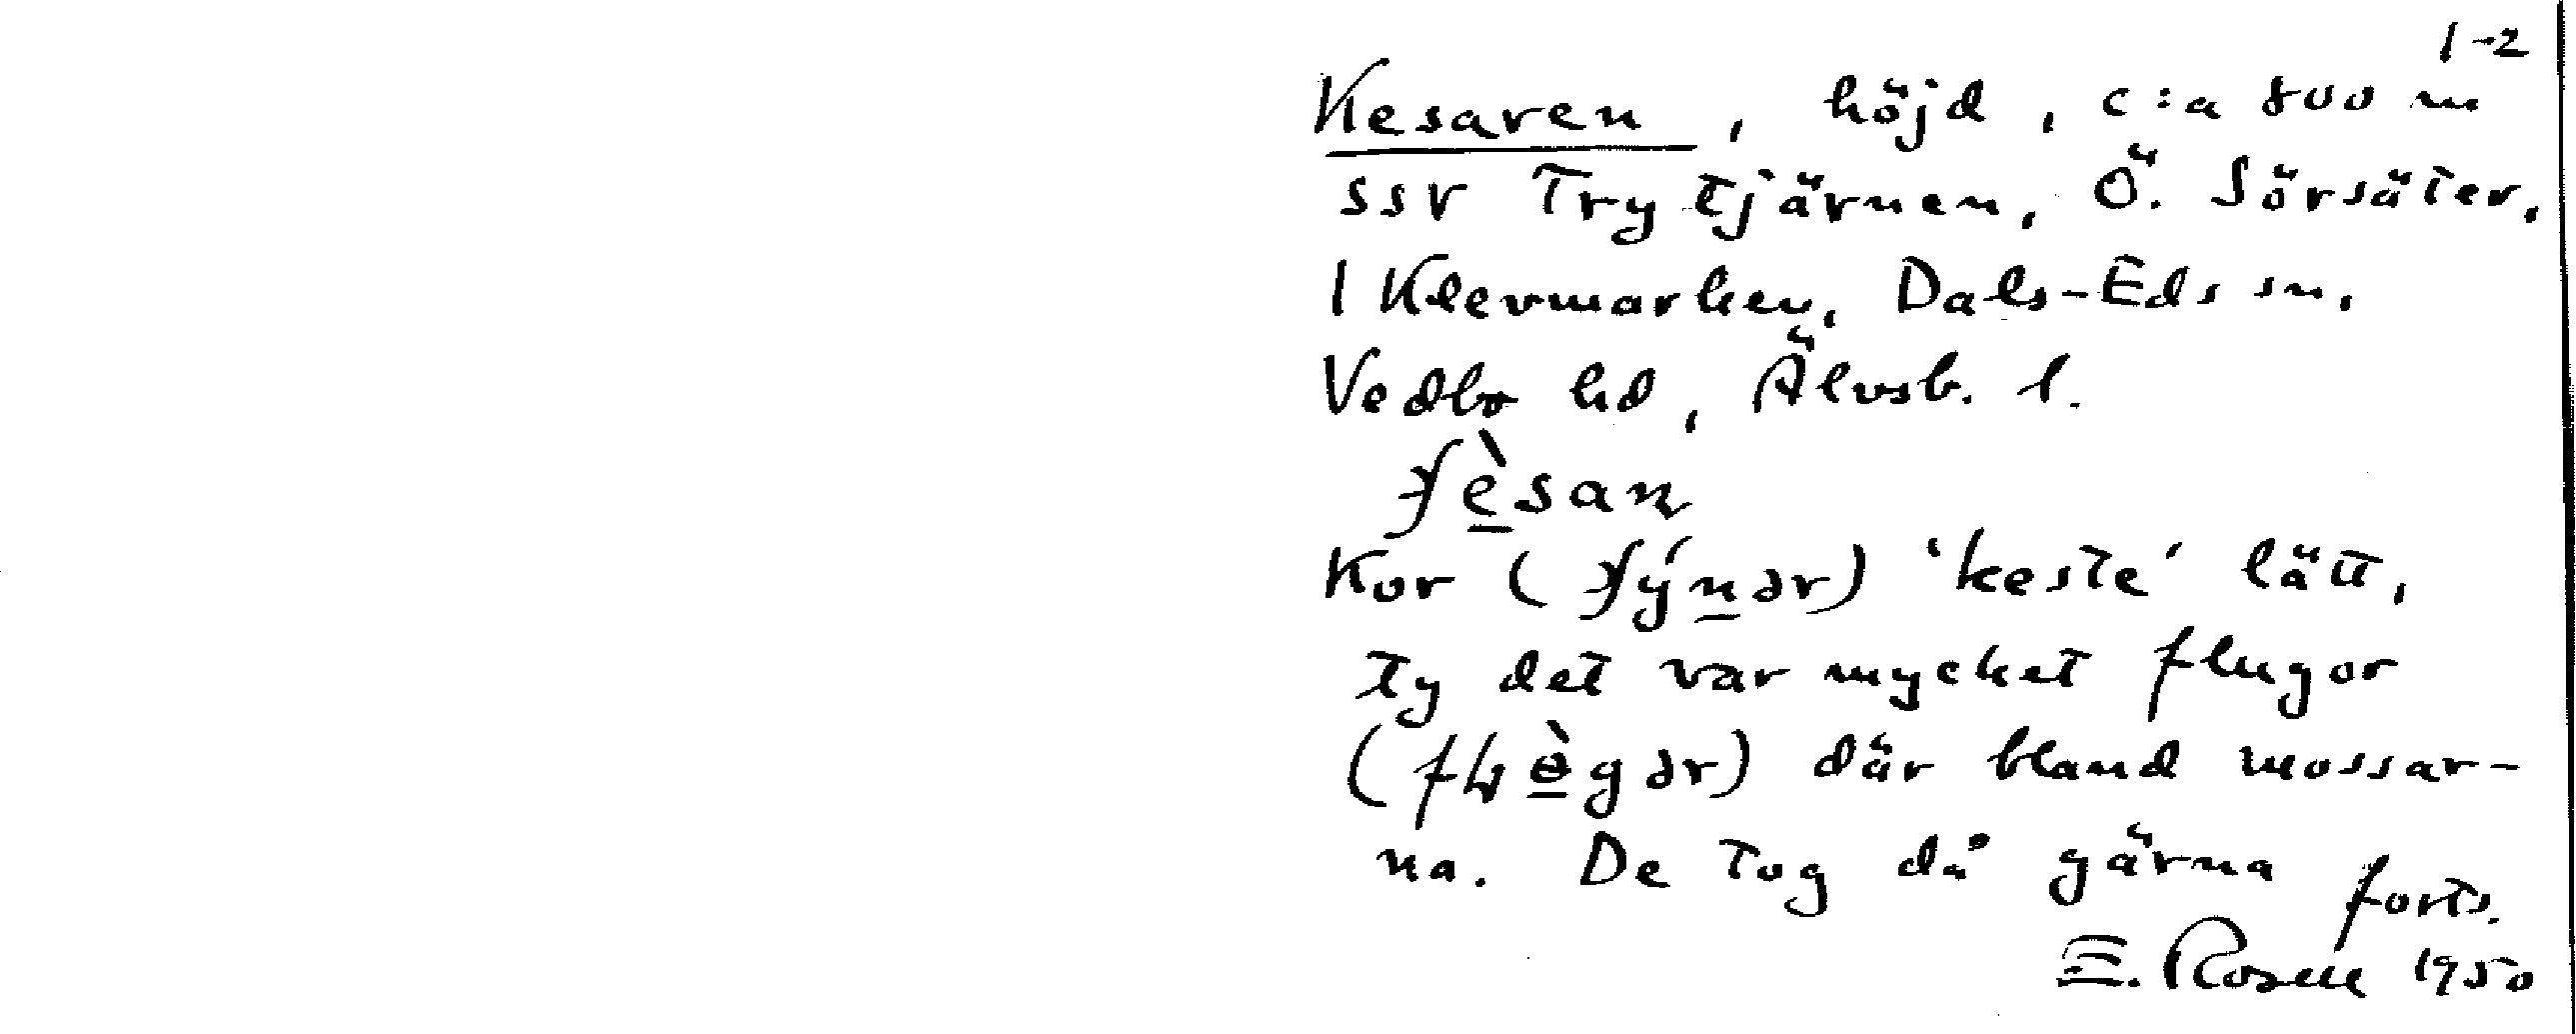 1-2
Kesaren, höjd, c:a 800 m
SSV Trytjärnen, Ö. Sörsäter,
1 Klevmarken, Dals-Eds sn,
Vedbo hd, Älvsb. l.
Kor ( ) 'keste' lätt,
ty det var mycket flugor
( ) där bland mossar-
na. De tog då gärna
forts.
E. Rosell 1950